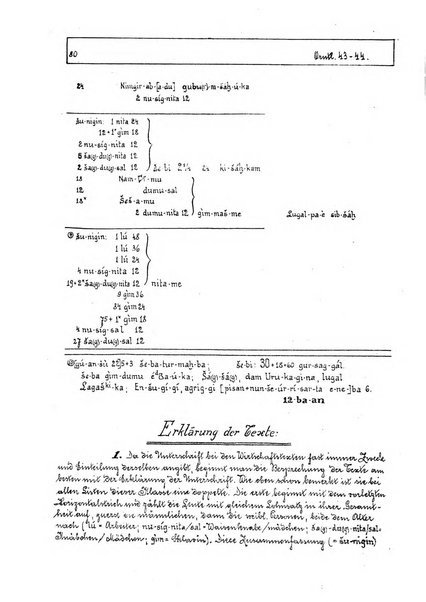 80 Orukl. 43-44.
24 Ningir-ab-[a-du] gubu(r)-m-šáḫ-ú-ka
2 nu-síg-nita 12
šu-nigin: 1 nita 24
12+1° gim 18
2 nu-síg-nita 12
5 šà(g)-du(g)-nita 12
2 šà(g)-du(g)-sal 12 še-bi 2¼ ki-šáḫ-kam
18 Nam-Ur-mu
12 dumu-sal
18° Šeš-a-mu
2 dumu-nita 12 gim-maš-me Lugal-pa-è sib-šáḫ
šu-nigin: 1 lú 48
1 lú 36
1 lú 24
4 nu-síg-nita 12
19+2° šà(g)-du(g)-nita 12 nita-me
9 gim 36
34 gim 24
75+1° gim 18
4 nu-síg-sal 12
27 šà(g)-du(g)-sal 12
gú-an-šù 5+3 še-ba-tur-maḫ-ba; še-bi: 30+18+60 gur-sag-gál.
še-ba gim-dumu é Ba-ú-ka; Šá(g)-šá(g), dam Uru-ka-gi-na, lugal
Lagaš-ka; En-šu-gi-gí, agrig-gi [pisan+nun-še-úr-rí-sar-ta e-ne-]ba 6.
12-ba-an
Erklärung der Texte:
1. Da die Unterschrift bei den Wirtschaftstexten fast immer Zweck
und Einteilung derselben angibt, beginnt man die Besprechung der Texte am
besten mit der Erklärung der Unterschrift. Wie oben schon bemerkt ist sie bei
allen Listen dieser Klasse eine doppelte. Die erste beginnt mit dem vorletzten
Horizontalstrich und zählt die Leute mit gleichem Lohnsatz in ihrer Gesamt-
heit auf, zuerst die männlichen, dann die weibl. Personen, beide dem Alter
nach (lú = Arbeiter; nu-síg-nita/sal = Waisenknabe/mädchen; šà(g)-du(g)-nita/sal =
Knäbchen/Mädchen; gim = Sklavin). Diese Zusammenfassung (= šu-nigin)